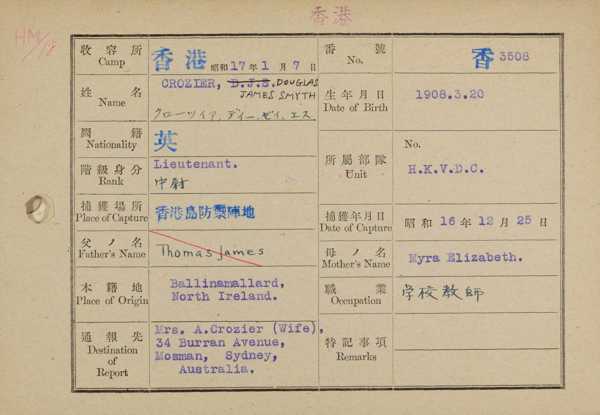 香港
HM/18
收容所
Camp
香港 昭和 17 年 1 月 7 日
番號
No.
香 3508
姓名
Name
CROZIER, D.J.S. DOUGLAS
JAMES SMYTH
クローツイア, ディー. ゼイ. エス
生年月日
Date of Birth
1908.3.20
國籍
Nationality
英
所屬部隊
Unit
No.
H.K.V.D.C.
階級身分
Rank
Lieutenant.
中尉
捕獲場所
Place of Capture
香港島防禦陣地
捕獲年月日
Date of Capture
昭和 16 年 12 月 25 日
父ノ名
Father's Name
Thomas James
母ノ名
Mother's Name
Myra Elizabeth.
本籍地
Place of Origin
Ballinamallard,
North Ireland.
職業
Occupation
学校教師
通報先
Destination
of
Report
Mrs. A.Crozier (Wife),
34 Burran Avenue,
Mosman, Sydney,
Australia.
特記事項
Remarks